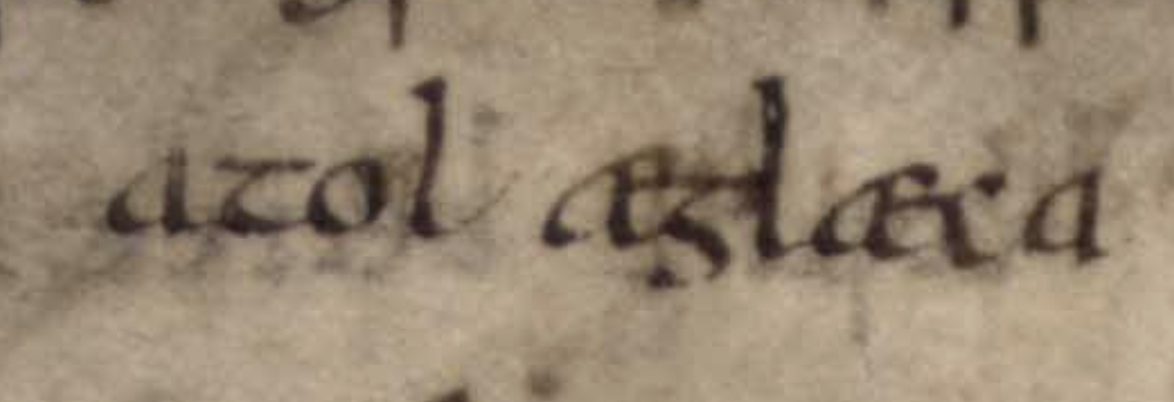 atol æglæca